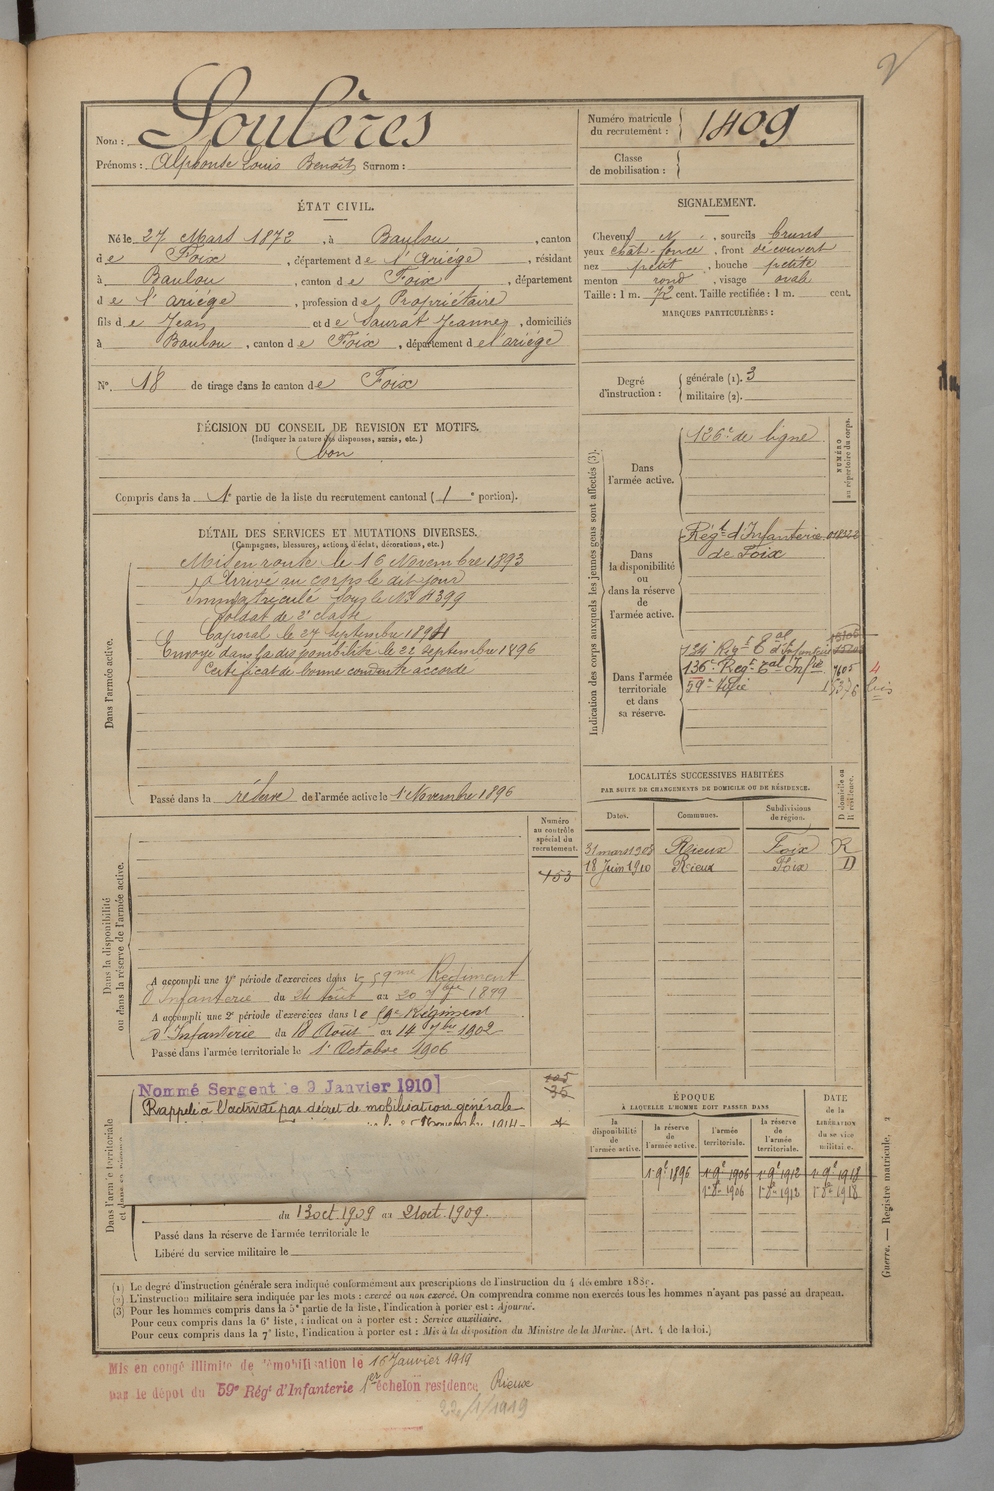 2
Nom : Soulères
Prénoms : Alphonse Louis Benoît Surnom :
Numéro matricule du recrutement : 1409
Classe de mobilisation :
ÉTAT CIVIL.
Né le 27 Mars 1872, à Baulou, canton
de Foix, département de l'Ariége, résidant
à Baulou, canton de Foix, département
de l'ariége, profession de Propriétaire
fils de Jean et de Saurat Jeanne, domiciliés
à Baulou, canton de Foix, département de l'ariége
N° 18 de tirage dans le canton de Foix
SIGNALEMENT.
Cheveux N, sourcils bruns
yeux chât-foncé, front découvert
nez petit, bouche petite
menton rond, visage ovale
Taille : 1 m. 72 cent. Taille rectifiée : 1 m. cent.
MARQUES PARTICULIÈRES :
Degré d'instruction : générale (1). 3
militaire (2).
DÉCISION DU CONSEIL DE REVISION ET MOTIFS.
(Indiquer la nature des dispenses, sursis, etc.)
bon
Compris dans la 1e partie de la liste du recrutement cantonal (1e portion).
DÉTAIL DES SERVICES ET MUTATIONS DIVERSES.
(Campagnes, blessures, actions d'éclat, décorations, etc.)
Dans l'armée active.
Mis en route le 16 Novembre 1893
Arrivé au corps le dit jour
Immatriculé sous le N° 4399
soldat de 2e classe
Caporal le 27 septembre 1894
Envoyé dans la disponibilité le 22 septembre 1896
Certificat de bonne conduite accordé
Passé dans la réserve de l'armée active le 1 Novembre 1896
Indication des corps auxquels les jeunes gens sont affectés (3).
NUMÉRO au répertoire du corps.
Dans l'armée active.
126e de ligne
Dans la disponibilité ou dans la réserve de l'armée active.
Régt d'Infanterie
de Foix
Dans l'armée territoriale et dans sa réserve.
134 Régt Tal d'Infanterie
136e Régt Tal Infie 7605
59e Infie 15376
4 bis
LOCALITÉS SUCCESSIVES HABITÉES
PAR SUITE DE CHANGEMENTS DE DOMICILE OU DE RÉSIDENCE.
Dates. Communes. Subdivisions de région. D domicile ou R résidence.
31 mars 1908 Rieux Foix R
18 Juin 1910 Rieux Foix D
Numéro au contrôle spécial du recrutement.
153
Dans la disponibilité ou dans la réserve de l'armée active.
A accompli une 1re période d'exercices dans le 59me Régiment
d'Infanterie du 24 Août au 20 7bre 1899
A accompli une 2e période d'exercices dans le 59e Régiment
d'Infanterie du 18 Août au 14 7bre 1902
Passé dans l'armée territoriale le 1er Octobre 1906
Dans l'armée territoriale et dans sa réserve
Nommé Sergent le 9 Janvier 1910
Rappelé à l'activité par décret de mobilisation générale
105
35
du 13 oct 1909 au 21 oct. 1909.
Passé dans la réserve de l'armée territoriale le
Libéré du service militaire le
ÉPOQUE
À LAQUELLE L'HOMME DOIT PASSER DANS
DATE de la LIBÉRATION du service militaire.
la disponibilité de l'armée active. la réserve de l'armée active. l'armée territoriale. la réserve de l'armée territoriale.
1er 9e 1896 1er 9e 1906 1er 9e 1912 1er 9e 1918
1er 8e 1906 1er 8e 1912 1er 8e 1918
Guerre. — Registre matricule. 2
(1) Le degré d'instruction générale sera indiqué conformément aux prescriptions de l'instruction du 4 décembre 1889.
(2) L'instruction militaire sera indiquée par les mots : exercé ou non exercé. On comprendra comme non exercés tous les hommes n'ayant pas passé au drapeau.
(3) Pour les hommes compris dans la 5e partie de la liste, l'indication à porter est : Ajourné.
Pour ceux compris dans la 6e liste, l'indication à porter est : Service auxiliaire.
Pour ceux compris dans la 7e liste, l'indication à porter est : Mis à la disposition du Ministre de la Marine. (Art. 4 de la loi.)
Mis en congé illimité de démobilisation le 16 Janvier 1919
par le dépôt du 59e Régt d'Infanterie 1er échelon résidence Rieux
22/1/1919